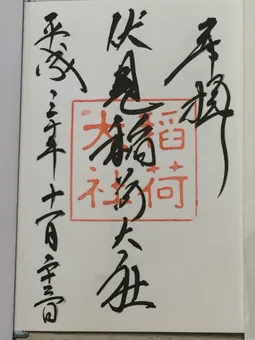 奉拝
伏見稲荷大社
稲荷
大社
平成三十年十一月二十三日